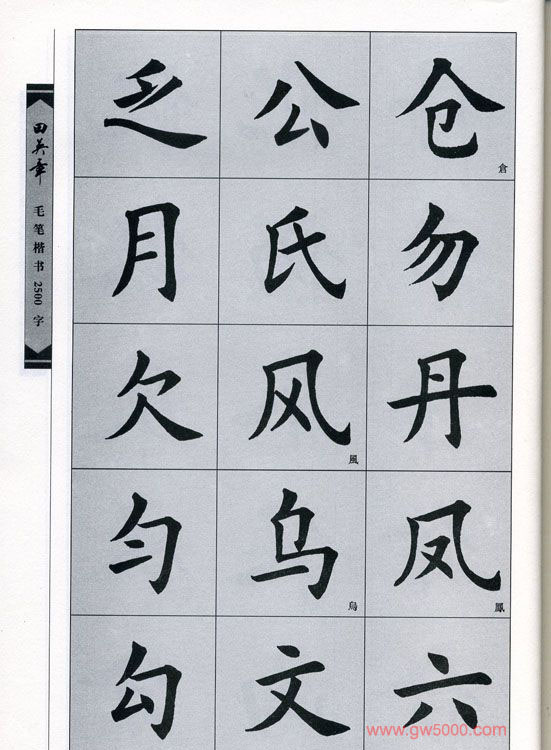 田英章 毛笔楷书 2500 字
乏 公 仓 倉
月 氏 勿
欠 风 風 丹
匀 乌 烏 凤 鳳
勾 文 六
www.gw5000.com